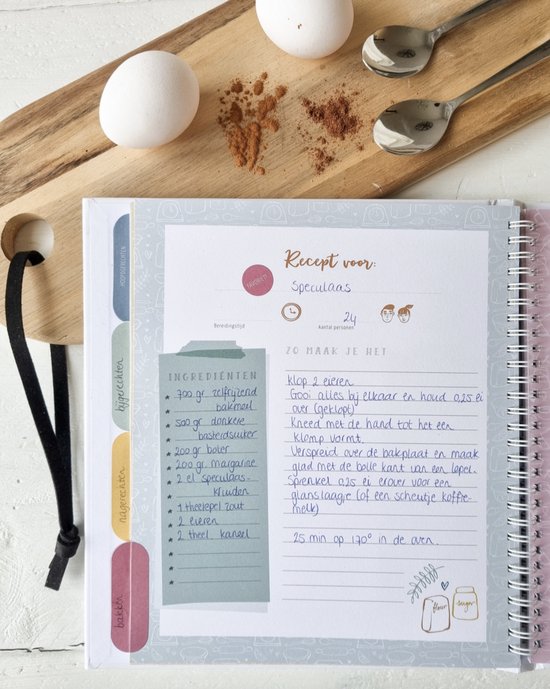 Recept voor:
FAVORIET!
Speculaas
24
Bereidingstijd
aantal personen
ZO MAAK JE HET
INGREDIËNTEN
700 gr. zelfrijzend
bakmeel
500 gr. donkere
basterdsuiker
200 gr. boter
200 gr. margarine
2 el speculaas-
kruiden
1 theelepel zout
2 eieren
2 theel. kaneel
Klop 2 eieren
Gooi alles bij elkaar en houd 0,25 ei
over (geklopt)
Kneed met de hand tot het een
klomp vormt.
Verspreid over de bakplaat en maak
glad met de bolle kant van een lepel.
Sprenkel 0,25 ei erover voor een
glanslaagje (of een scheutje koffie-
melk)
25 min op 170° in de oven.
flour
sugar
HOOFDGERECHTEN
bijgerechten
nagerechten
bakken